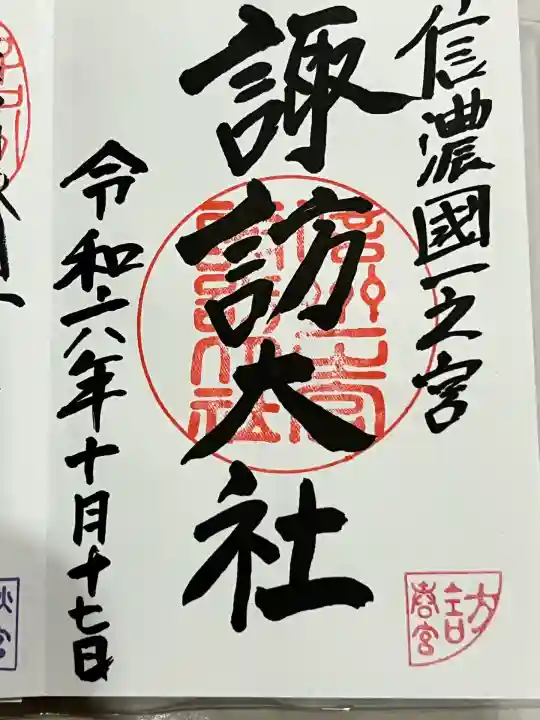 信濃國一之宮
諏訪大社
令和六年十月十七日
諏訪
春宮
秋宮